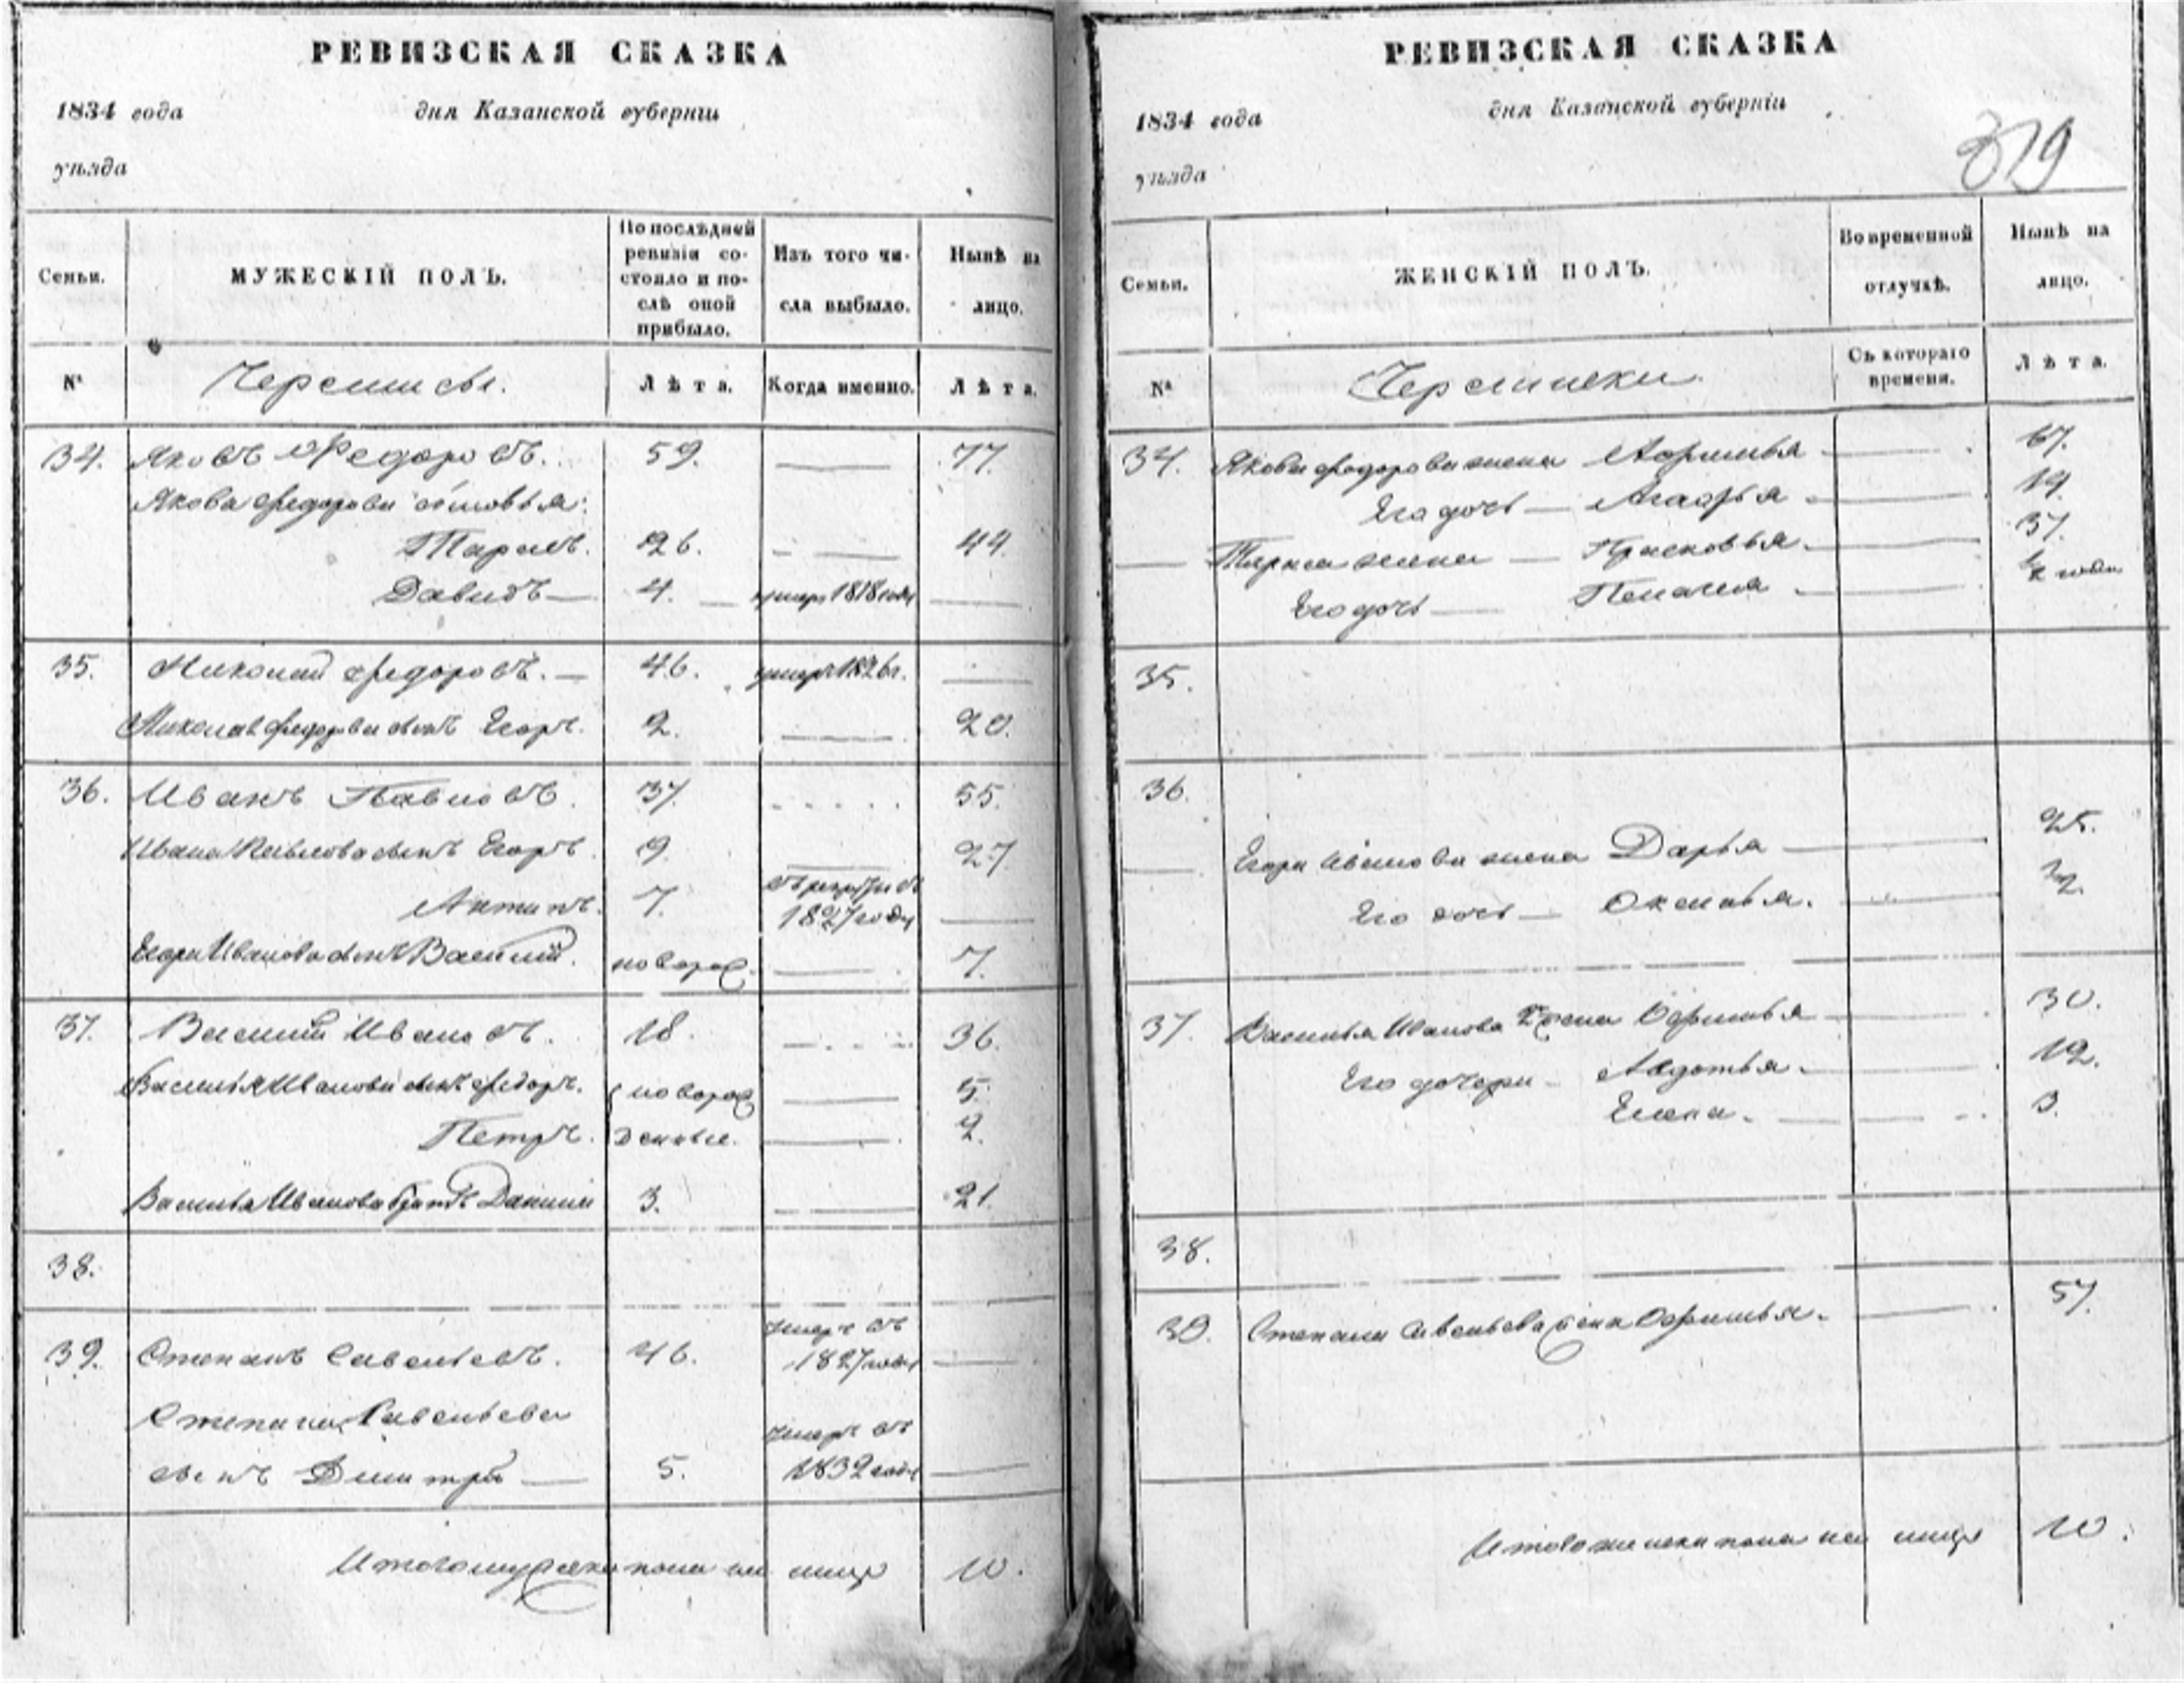 РЕВИЗСКАЯ СКАЗКА
1834 года дня Казанской губернiи
уѣзда
Семьи. МУЖЕСКIЙ ПОЛЪ. По послѣдней ревизiи состояло и послѣ оной прибыло. Изъ того числа выбыло. Нынѣ на лицо.
№ Черемисы. Лѣта. Когда именно. Лѣта.
34. Яковъ Федоровъ. 59. 77.
Якова Федорова сыновья:
Тарасъ. 26. 44.
Давидъ 4. умеръ 1818 года
35. Николай Федоровъ. 46. умеръ 1826 г.
Николая Федорова сынъ Егоръ. 2. 20.
36. Иванъ Павловъ. 37. 55.
Ивана Павлова сынъ Егоръ. 9. 27
Антипъ. 7. въ рекруты въ 1827 году
Егора Иванова сынъ Василий. новорож. 7.
37. Василий Ивановъ. 18. 36.
Василья Иванова сынъ Федоръ. новорож 5.
Петръ. денные. 2.
Василья Иванова братъ Данила 3. 21.
38.
39. Степанъ Савельевъ. 46. умеръ въ 1827 году
Степана Савельева
сынъ Дмитрiй 5. умеръ въ 1832 году
Итого мужска пола на лицо 10.
РЕВИЗСКАЯ СКАЗКА
1834 года дня Казанской губернiи
уѣзда
319
Семьи. ЖЕНСКIЙ ПОЛЪ. Во временной отлучкѣ. Нынѣ на лицо.
№ Черемиски. Съ котораго времени. Лѣта.
34. Якова Федорова жена 67.
Его дочь Агафья 19.
Тараса жена Прасковья. 37.
Его дочь Пелагея ½ года
35.
36.
Егора Иванова жена Дарья 25.
Его дочь
37. Василья Иванова жена Офимья 30.
Его дочери Авдотья. 12.
Елена. 3.
38.
39. Степана Савельева жена Офимья. 57.
Итого женска пола на лицо 10.